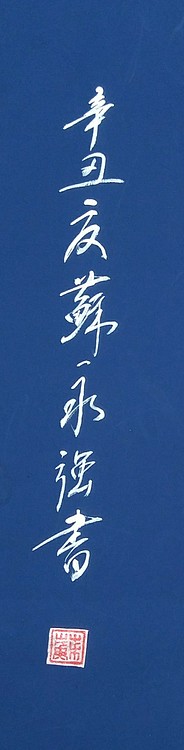 辛丑夏蘇永强書